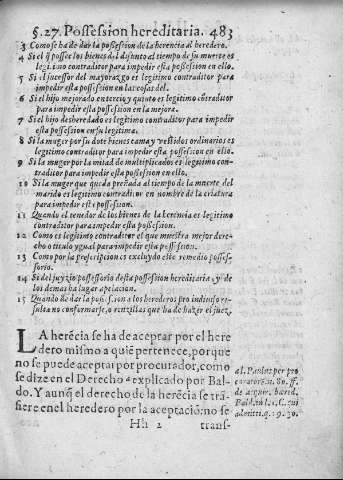 §. 27. Possession hereditaria. 483
3 Como se ha de dar la possession de la herencia al heredero.
4 Si el q̃ possee los bienes del difunto al tiempo de su muerte es
legitimo contraditor para impedir esta possession en ello.
5 Si el sucessor del mayorazgo es legitimo contraditor para
impedir esta possession en las cosas del.
6 Si el hijo mejorado en tercio y quinto es legitimo cõtraditor
para impedir esta possession en la mejora.
7 Si el hijo desheredado es legitimo contraditor para impedir
esta possession en su legitima.
8 Si la muger por su dote bienes cama y vestidos ordinarios es
legitimo contraditor para impedir esta possession en ello.
9 Si la muger por la mitad de multiplicados es legitimo con-
traditor para impedir esta possession en ello.
10 Si la muger que queda preñada al tiempo de la muerte del
marido es legitimo contraditor en nombre de la criatura
para impedir esta possession.
11 Quando el tenedor de los bienes de la herẽcia es legitimo
contraditor para impedir esta possession.
12 Como es legitimo contraditor el que muestra mejor dere-
cho o titulo ygual para impedir esta possession.
13 Como por la prescripcion es excluydo este remedio posses-
sorio.
14 Si del juyzio possessorio desta possession hereditaria, y de
los demas ha lugar apelacion.
15 Quando de dar la possession a los herederos pro indiuiso re-
sulta no conformarse, o renzillas que ha de hazer el juez.
LA herẽcia se ha de aceptar por el here
dero mismo a quiẽ pertenece, porque
no se puede aceptar por procurador, como
se dize en el Derecho a explicado por Bal-
do. Y aunq̃ el derecho de la herẽcia se trã-
fiere en el heredero por la aceptaciõ: no se
a l. Paulus per pro
curatorem. 80. ff.
de acquir. hæred.
Bald. in l. 1. C. qui
admitti. q. 19. 20.
Hh 2 trans-